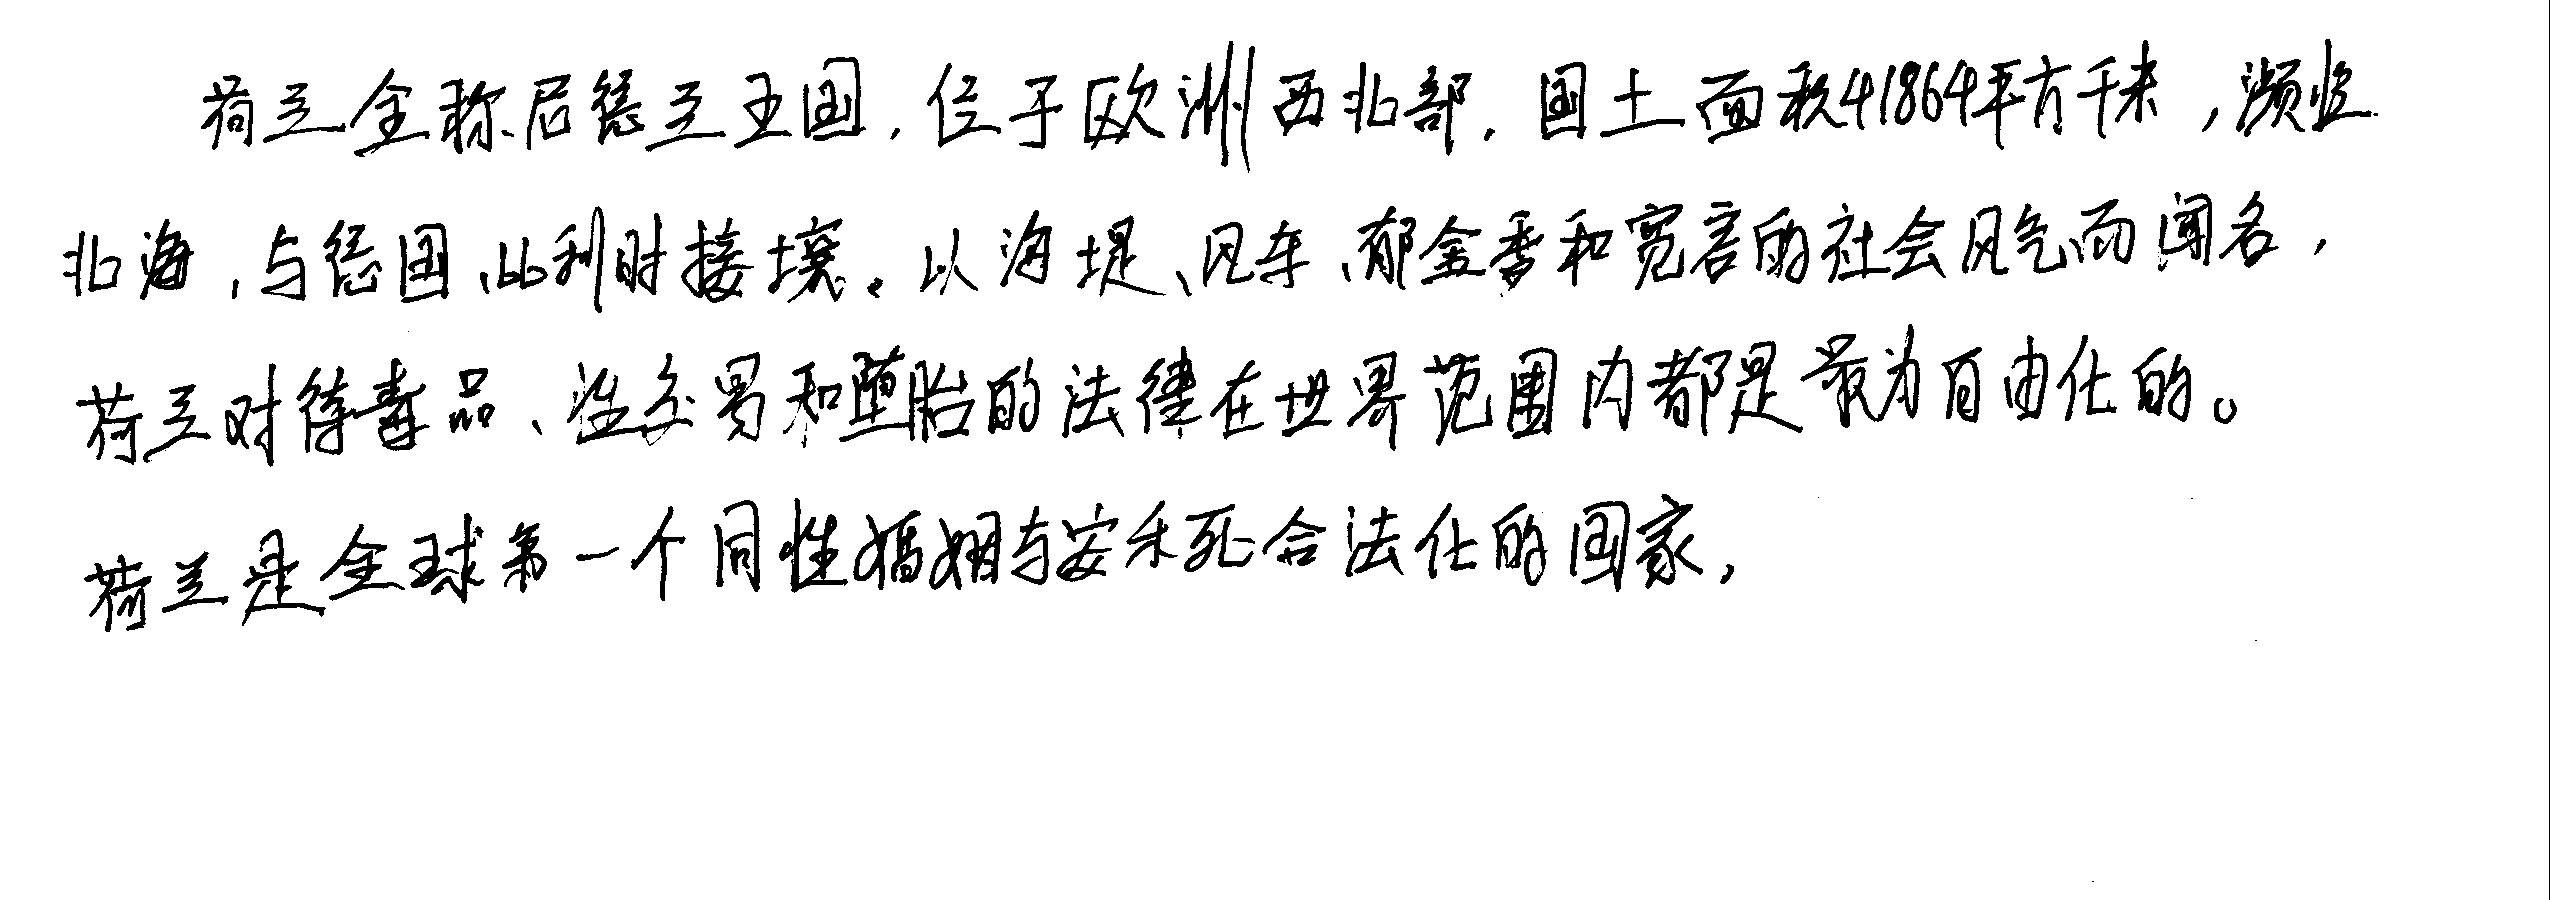 荷兰全称尼德兰王国,位于欧洲西北部,国土面积41864平方千米,濒临
北海,与德国、比利时接壤。以海堤、风车、郁金香和宽容的社会风气而闻名,
荷兰对待毒品、性交易和堕胎的法律在世界范围内都是最为自由化的。
荷兰是全球第一个同性婚姻与安乐死合法化的国家,